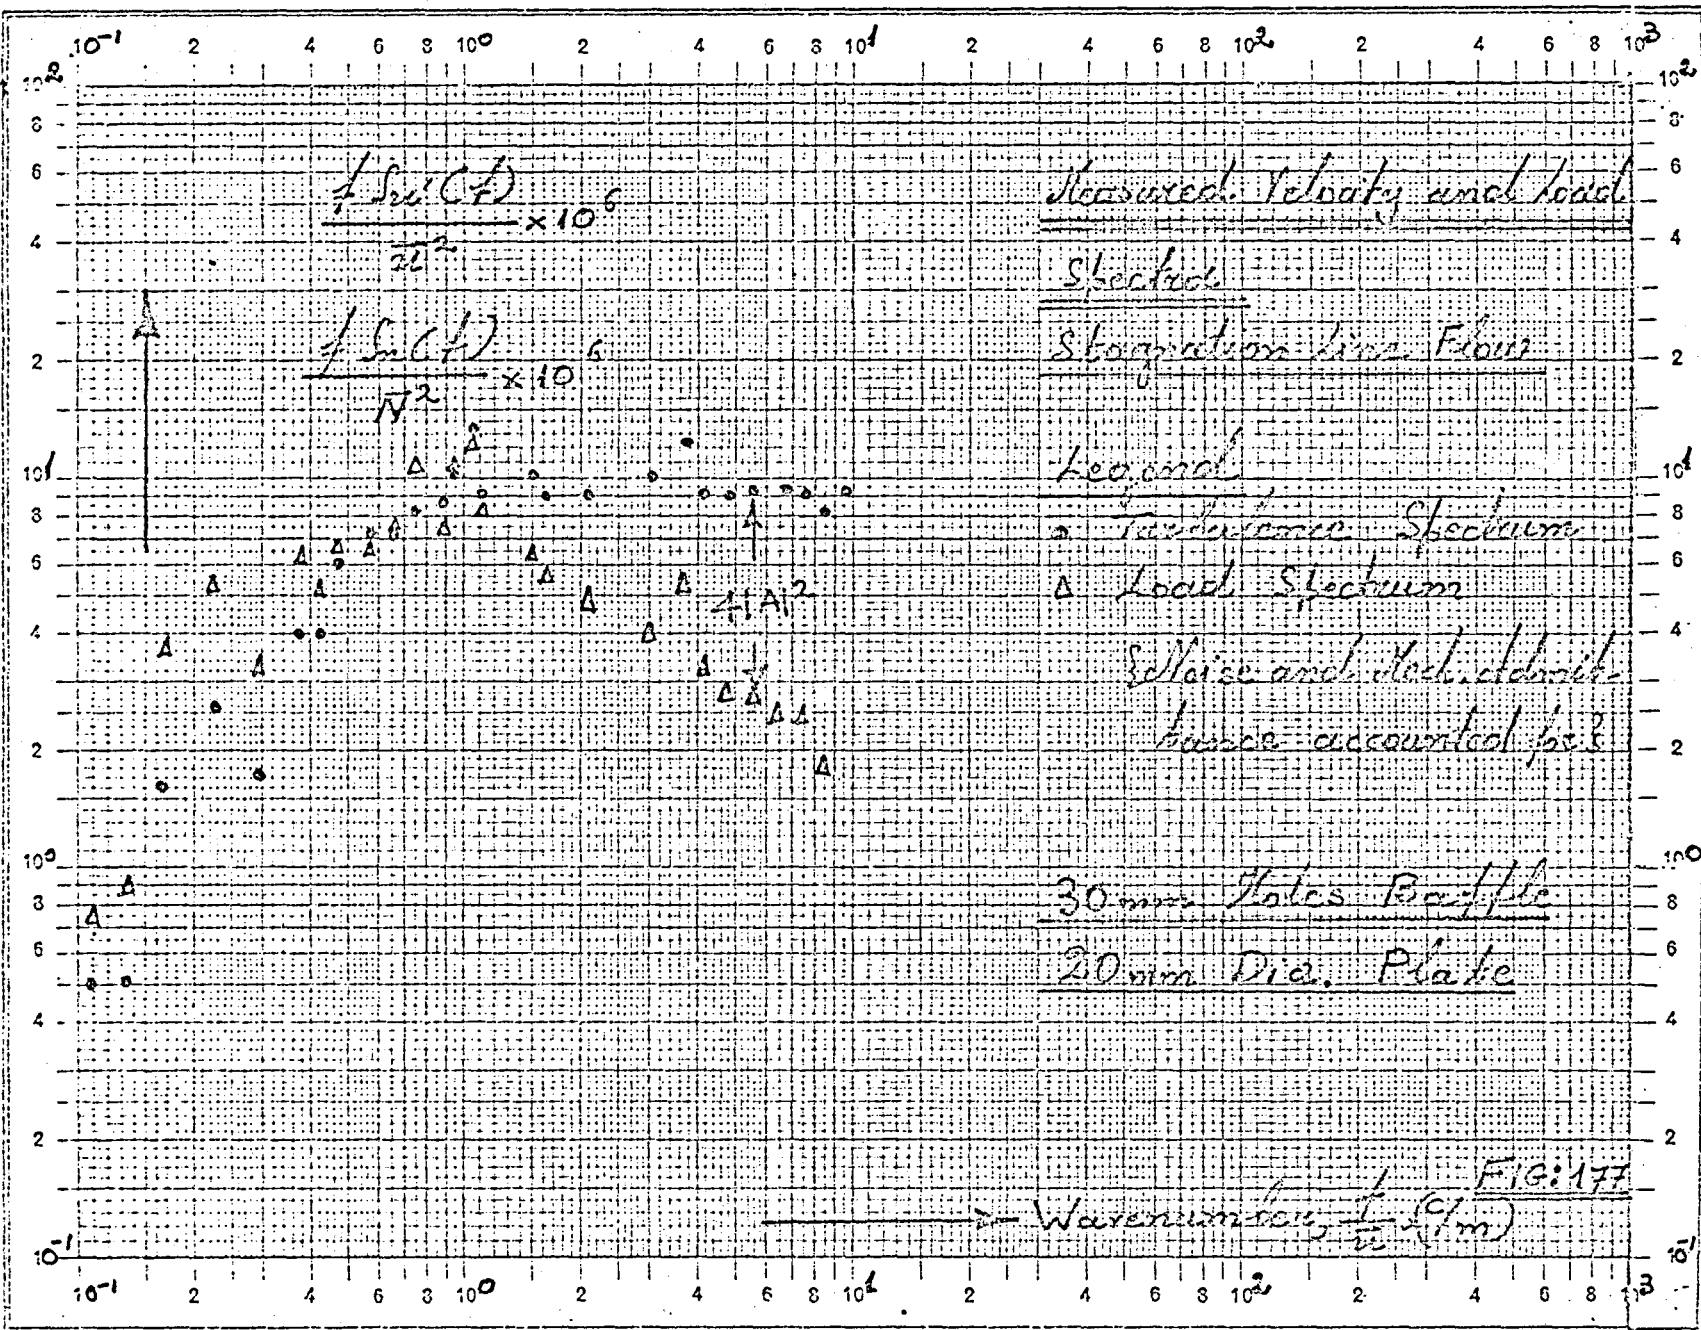 10-1 2 4 6 8 100 2 4 6 8 101 2 4 6 8 102 2 4 6 8 103
102 8 6 4 2 101 8 6 4 2 100 8 6 4 2 10-1
f Su'(f) / ū2 × 106
f Sn(f) / N̄2 × 106
4|A|2
Measured Velocity and Load
Spectra
Stagnation Line Flow
Legend
o Turbulence Spectrum
Δ Load Spectrum
{Noise and Mech. Admit-
tance accounted for}
30 mm Holes Baffle
20 mm Dia. Plate
FIG: 177
Wavenumber, f/ū (c/m)
102 8 6 4 2 101 8 6 4 2 100 8 6 4 2 10-1
10-1 2 4 6 8 100 2 4 6 8 101 2 4 6 8 102 2 4 6 8 103